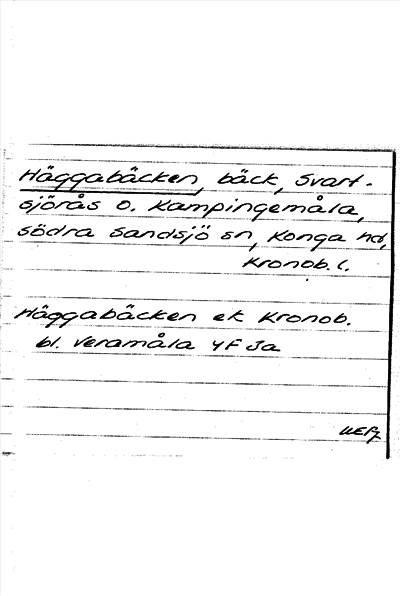 Häggabäcken, bäck, Svart-
sjörås o. Kampingemåla,
Södra Sandsjö sn, Konga hd,
Kronob. l.
Häggabäcken ek Kronob.
bl. Veramåla 4F Ja